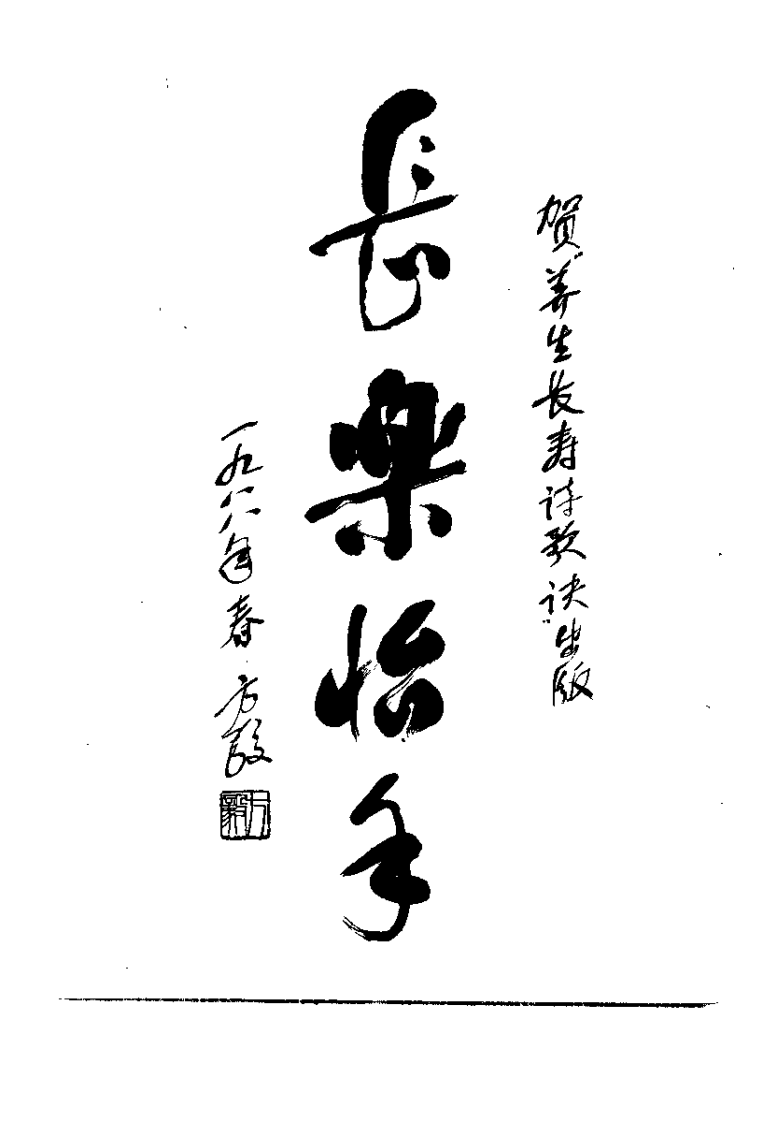 贺“养生长寿诗歌诀”出版
長樂怡年
一九八八年春 方毅
方毅